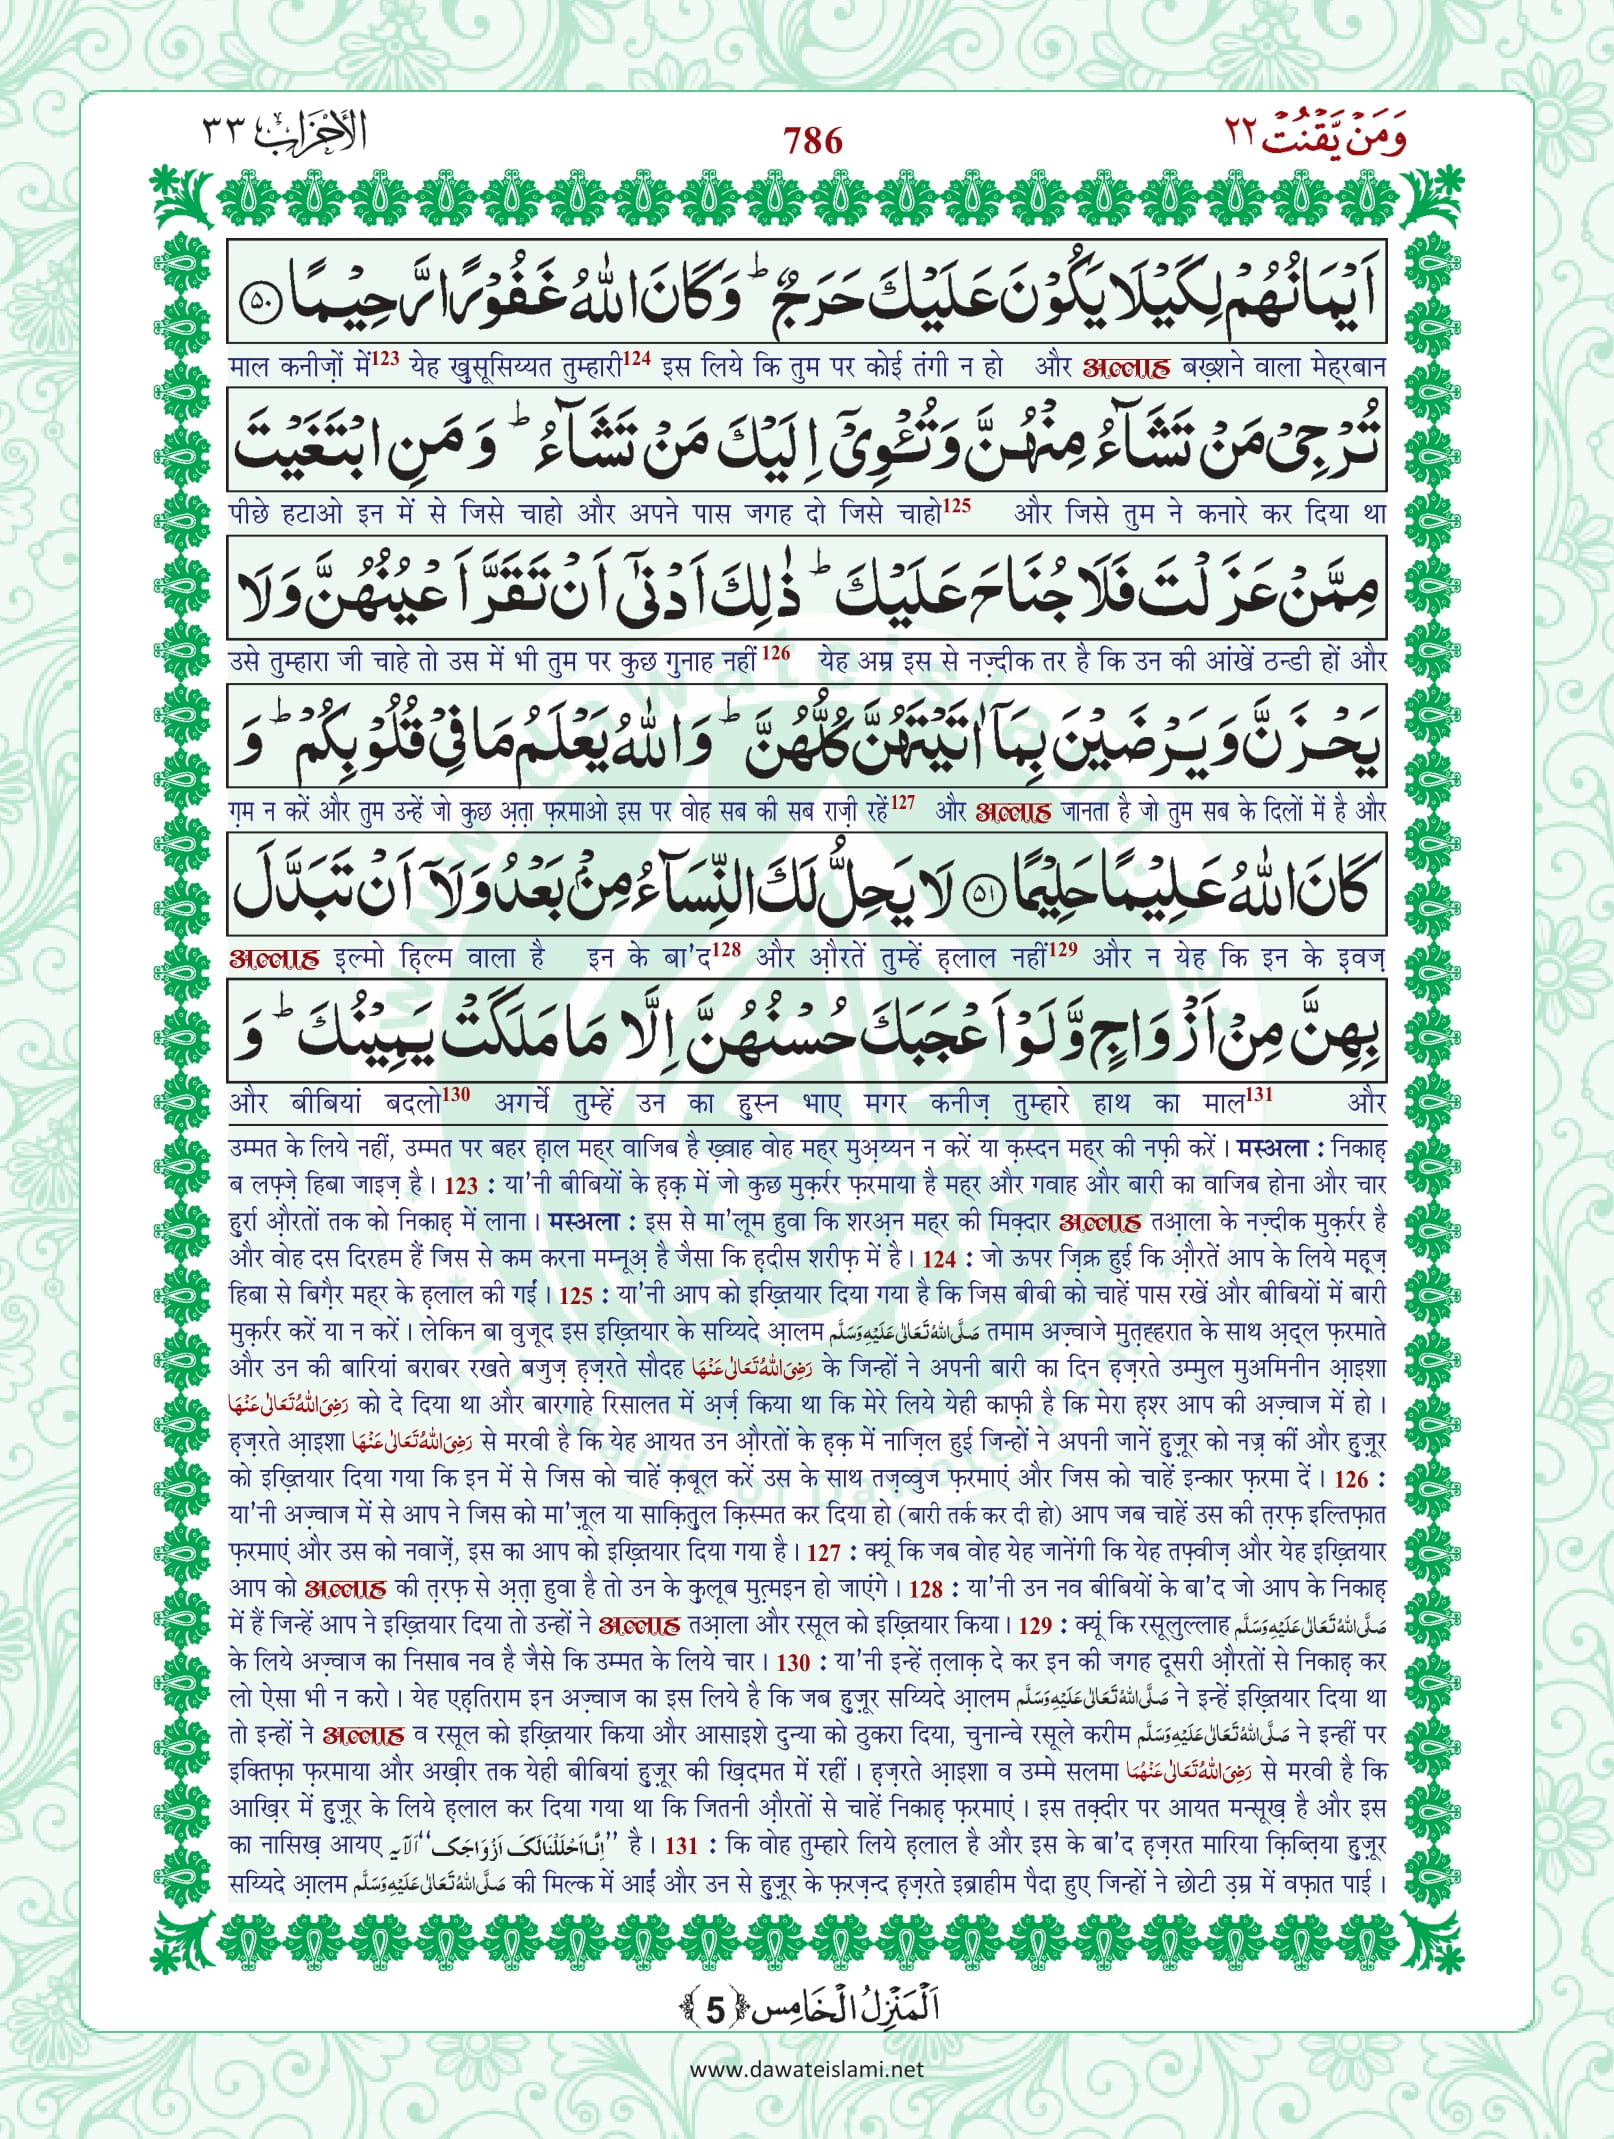 وَمَنۡ یَّقۡنُتۡ ٢٢
786
الۡاَحۡزَاب ٣٣
اَیۡمَانُهُمۡ لِكَیۡلَا یَكُوۡنَ عَلَیۡكَ حَرَجٌ ؕ وَكَانَ اللّٰهُ غَفُوۡرًا رَّحِیۡمًا ﴿۵۰﴾
माल कनीज़ों में123 येह ख़ुसूसिय्यत तुम्हारी124 इस लिये कि तुम पर कोई तंगी न हो और अल्लाह बख़्शने वाला मेह्रबान
تُرۡجِیۡ مَنۡ تَشَآءُ مِنۡهُنَّ وَتُــٔۡوِیۡۤ اِلَیۡكَ مَنۡ تَشَآءُ ؕ وَمَنِ ابۡتَغَیۡتَ
पीछे हटाओ इन में से जिसे चाहो और अपने पास जगह दो जिसे चाहो125 और जिसे तुम ने कनारे कर दिया था
مِمَّنۡ عَزَلۡتَ فَلَا جُنَاحَ عَلَیۡكَ ؕ ذٰلِكَ اَدۡنٰۤی اَنۡ تَقَرَّ اَعۡیُنُهُنَّ وَلَا
उसे तुम्हारा जी चाहे तो उस में भी तुम पर कुछ गुनाह नहीं126 येह अम्र इस से नज़्दीक तर है कि उन की आंखें ठन्डी हों और
یَحۡزَنَّ وَیَرۡضَیۡنَ بِمَاۤ اٰتَیۡتَهُنَّ كُلُّهُنَّ ؕ وَاللّٰهُ یَعۡلَمُ مَا فِیۡ قُلُوۡبِكُمۡ ؕ وَ
ग़म न करें और तुम उन्हें जो कुछ अ़ता़ फ़रमाओ इस पर वोह सब की सब राज़ी रहें127 और अल्लाह जानता है जो तुम सब के दिलों में है और
كَانَ اللّٰهُ عَلِیۡمًا حَلِیۡمًا ﴿۵۱﴾ لَا یَحِلُّ لَكَ النِّسَآءُ مِنۡۢ بَعۡدُ وَلَاۤ اَنۡ تَبَدَّلَ
अल्लाह इल्मो ह़िल्म वाला है इन के बा'द128 और औ़रतें तुम्हें ह़लाल नहीं129 और न येह कि इन के इवज़
بِهِنَّ مِنۡ اَزۡوَاجٍ وَّلَوۡ اَعۡجَبَكَ حُسۡنُهُنَّ اِلَّا مَا مَلَكَتۡ یَمِیۡنُكَ ؕ وَ
और बीबियां बदलो130 अगर्चे तुम्हें उन का हुस्न भाए मगर कनीज़ तुम्हारे हाथ का माल131 और
उम्मत के लिये नहीं, उम्मत पर बहर ह़ाल मह्र वाजिब है ख़्वाह वोह मह्र मुअ़य्यन न करें या क़स्दन मह्र की नफ़ी करें। मस्अला : निकाह़
ब लफ़्ज़े हिबा जाइज़ है। 123 : या'नी बीबियों के ह़क़ में जो कुछ मुक़र्रर फ़रमाया है मह्र और गवाह और बारी का वाजिब होना और चार
हुर्रा औ़रतों तक को निकाह़ में लाना। मस्अला : इस से मा'लूम हुवा कि शरअ़न मह्र की मिक़्दार अल्लाह तआ़ला के नज़्दीक मुक़र्रर है
और वोह दस दिरहम हैं जिस से कम करना मम्नूअ़ है जैसा कि ह़दीस शरीफ़ में है। 124 : जो ऊपर ज़िक्र हुई कि औ़रतें आप के लिये मह़्ज़
हिबा से बिग़ैर मह्र के ह़लाल की गईं। 125 : या'नी आप को इख़्तियार दिया गया है कि जिस बीबी को चाहें पास रखें और बीबियों में बारी
मुक़र्रर करें या न करें। लेकिन बा वुजूद इस इख़्तियार के सय्यिदे आ़लम صَلَّی اللّٰهُ تَعَالٰی عَلَیۡهِ وَسَلَّم तमाम अज़्वाजे मुत़ह्हरात के साथ अ़द्ल फ़रमाते
और उन की बारियां बराबर रखते बजुज़ ह़ज़रते सौदह رَضِیَ اللّٰهُ تَعَالٰی عَنۡهَا के जिन्हों ने अपनी बारी का दिन ह़ज़रते उम्मुल मुअमिनीन आ़इशा
رَضِیَ اللّٰهُ تَعَالٰی عَنۡهَا को दे दिया था और बारगाहे रिसालत में अ़र्ज़ किया था कि मेरे लिये येही काफ़ी है कि मेरा ह़श्र आप की अज़्वाज में हो।
ह़ज़रते आ़इशा رَضِیَ اللّٰهُ تَعَالٰی عَنۡهَا से मरवी है कि येह आयत उन औ़रतों के ह़क़ में नाज़िल हुई जिन्हों ने अपनी जानें हुज़ूर को नज़्र कीं और हुज़ूर
को इख़्तियार दिया गया कि इन में से जिस को चाहें क़बूल करें उस के साथ तज़व्वुज फ़रमाएं और जिस को चाहें इन्कार फ़रमा दें। 126 :
या'नी अज़्वाज में से आप ने जिस को मा'ज़ूल या साक़ितुल क़िस्मत कर दिया हो (बारी तर्क कर दी हो) आप जब चाहें उस की त़रफ़ इल्तिफ़ात
फ़रमाएं और उस को नवाज़ें, इस का आप को इख़्तियार दिया गया है। 127 : क्यूं कि जब वोह येह जानेंगी कि येह तफ़्वीज़ और येह इख़्तियार
आप को अल्लाह की त़रफ़ से अ़ता़ हुवा है तो उन के कुलूब मुत़्मइन हो जाएंगे। 128 : या'नी उन नव बीबियों के बा'द जो आप के निकाह़
में हैं जिन्हें आप ने इख़्तियार दिया तो उन्हों ने अल्लाह तआ़ला और रसूल को इख़्तियार किया। 129 : क्यूं कि रसूलुल्लाह صَلَّی اللّٰهُ تَعَالٰی عَلَیۡهِ وَسَلَّم
के लिये अज़्वाज का निसाब नव है जैसे कि उम्मत के लिये चार। 130 : या'नी इन्हें त़लाक़ दे कर इन की जगह दूसरी औ़रतों से निकाह़ कर
लो ऐसा भी न करो। येह एह़तिराम इन अज़्वाज का इस लिये है कि जब हुज़ूर सय्यिदे आ़लम صَلَّی اللّٰهُ تَعَالٰی عَلَیۡهِ وَسَلَّم ने इन्हें इख़्तियार दिया था
तो इन्हों ने अल्लाह व रसूल को इख़्तियार किया और आसाइशे दुन्या को ठुकरा दिया, चुनान्चे रसूले करीम صَلَّی اللّٰهُ تَعَالٰی عَلَیۡهِ وَسَلَّم ने इन्हीं पर
इक्तिफ़ा फ़रमाया और अख़ीर तक येही बीबियां हुज़ूर की ख़िदमत में रहीं। ह़ज़रते आ़इशा व उम्मे सलमा رَضِیَ اللّٰهُ تَعَالٰی عَنۡهُمَا से मरवी है कि
आख़िर में हुज़ूर के लिये ह़लाल कर दिया गया था कि जितनी औ़रतों से चाहें निकाह़ फ़रमाएं। इस तक़्दीर पर आयत मन्सूख़ है और इस
का नासिख़ आयए ”اِنَّـاۤ اَحۡلَلۡنَا لَكَ اَزۡوَاجَكَ“ اَلآیه है। 131 : कि वोह तुम्हारे लिये ह़लाल है और इस के बा'द ह़ज़रत मारिया क़िब्ति़या हुज़ूर
सय्यिदे आ़लम صَلَّی اللّٰهُ تَعَالٰی عَلَیۡهِ وَسَلَّم की मिल्क में आईं और उन से हुज़ूर के फ़रज़न्द ह़ज़रते इब्राहीम पैदा हुए जिन्हों ने छोटी उ़म्र में वफ़ात पाई।
اَلۡمَنۡزِلُ الۡخَامِس ﴿5﴾
www.dawateislami.net